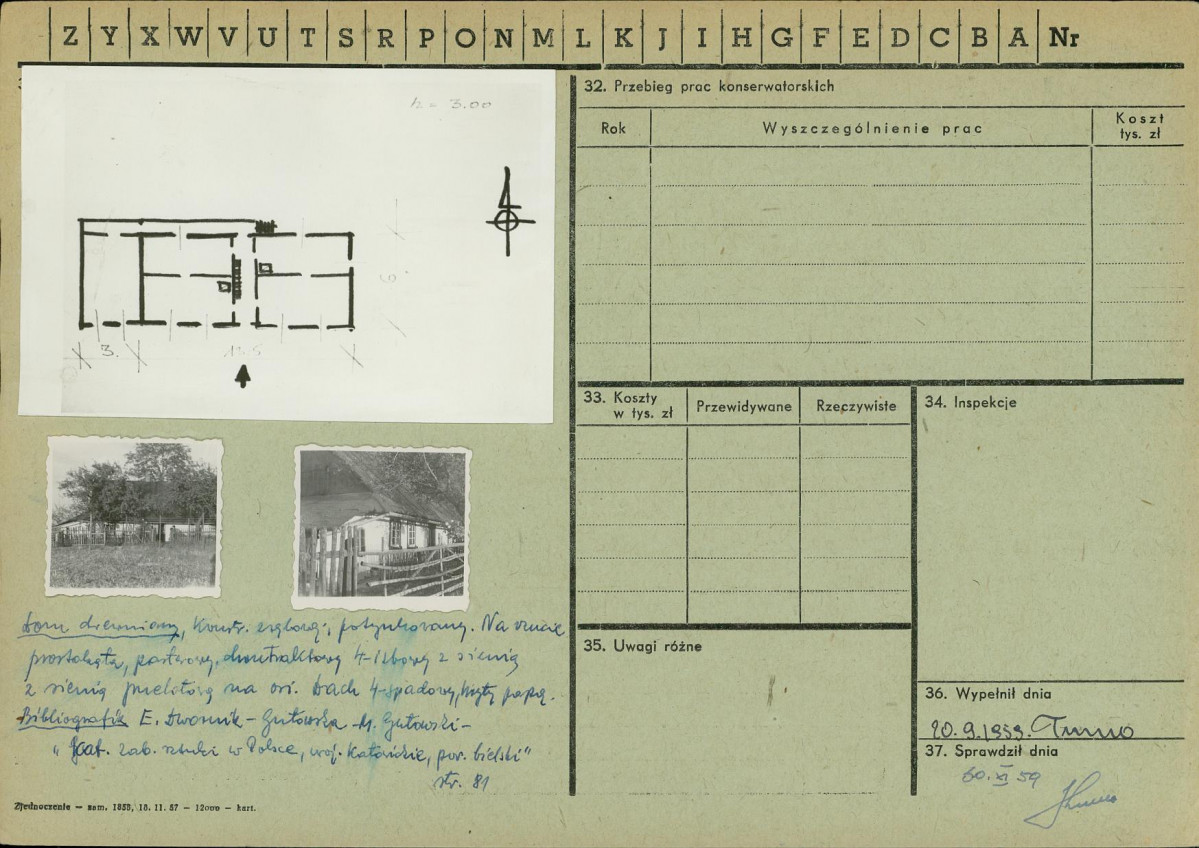 Z Y X W V U T S R P O N M L K J I H G F E D C B A Nr
h = 3.00
6
3.
13.5
Dom drewniany, Konstr. zrębowej, potynkowany. Na rzucie
prostokąta, parterowy, dwutraktowy 4-izbowy z sienią
z sienią przelotową na osi. Dach 4-spadowy, kryty papą.
Bibliografia E. Dwornik-Gutowska M. Gutowski -
"Kat. zab. sztuki w Polsce, woj. Katowickie, pow. bielski"
str. 81
Zjednoczenie — zam. 1858, 18. 11. 57 — 12000 — kart.
32. Przebieg prac konserwatorskich
Rok
Wyszczególnienie prac
Koszt
tys. zł
33. Koszty
w tys. zł
Przewidywane
Rzeczywiste
34. Inspekcje
35. Uwagi różne
36. Wypełnił dnia
20.9.1959.
37. Sprawdził dnia
XI 59